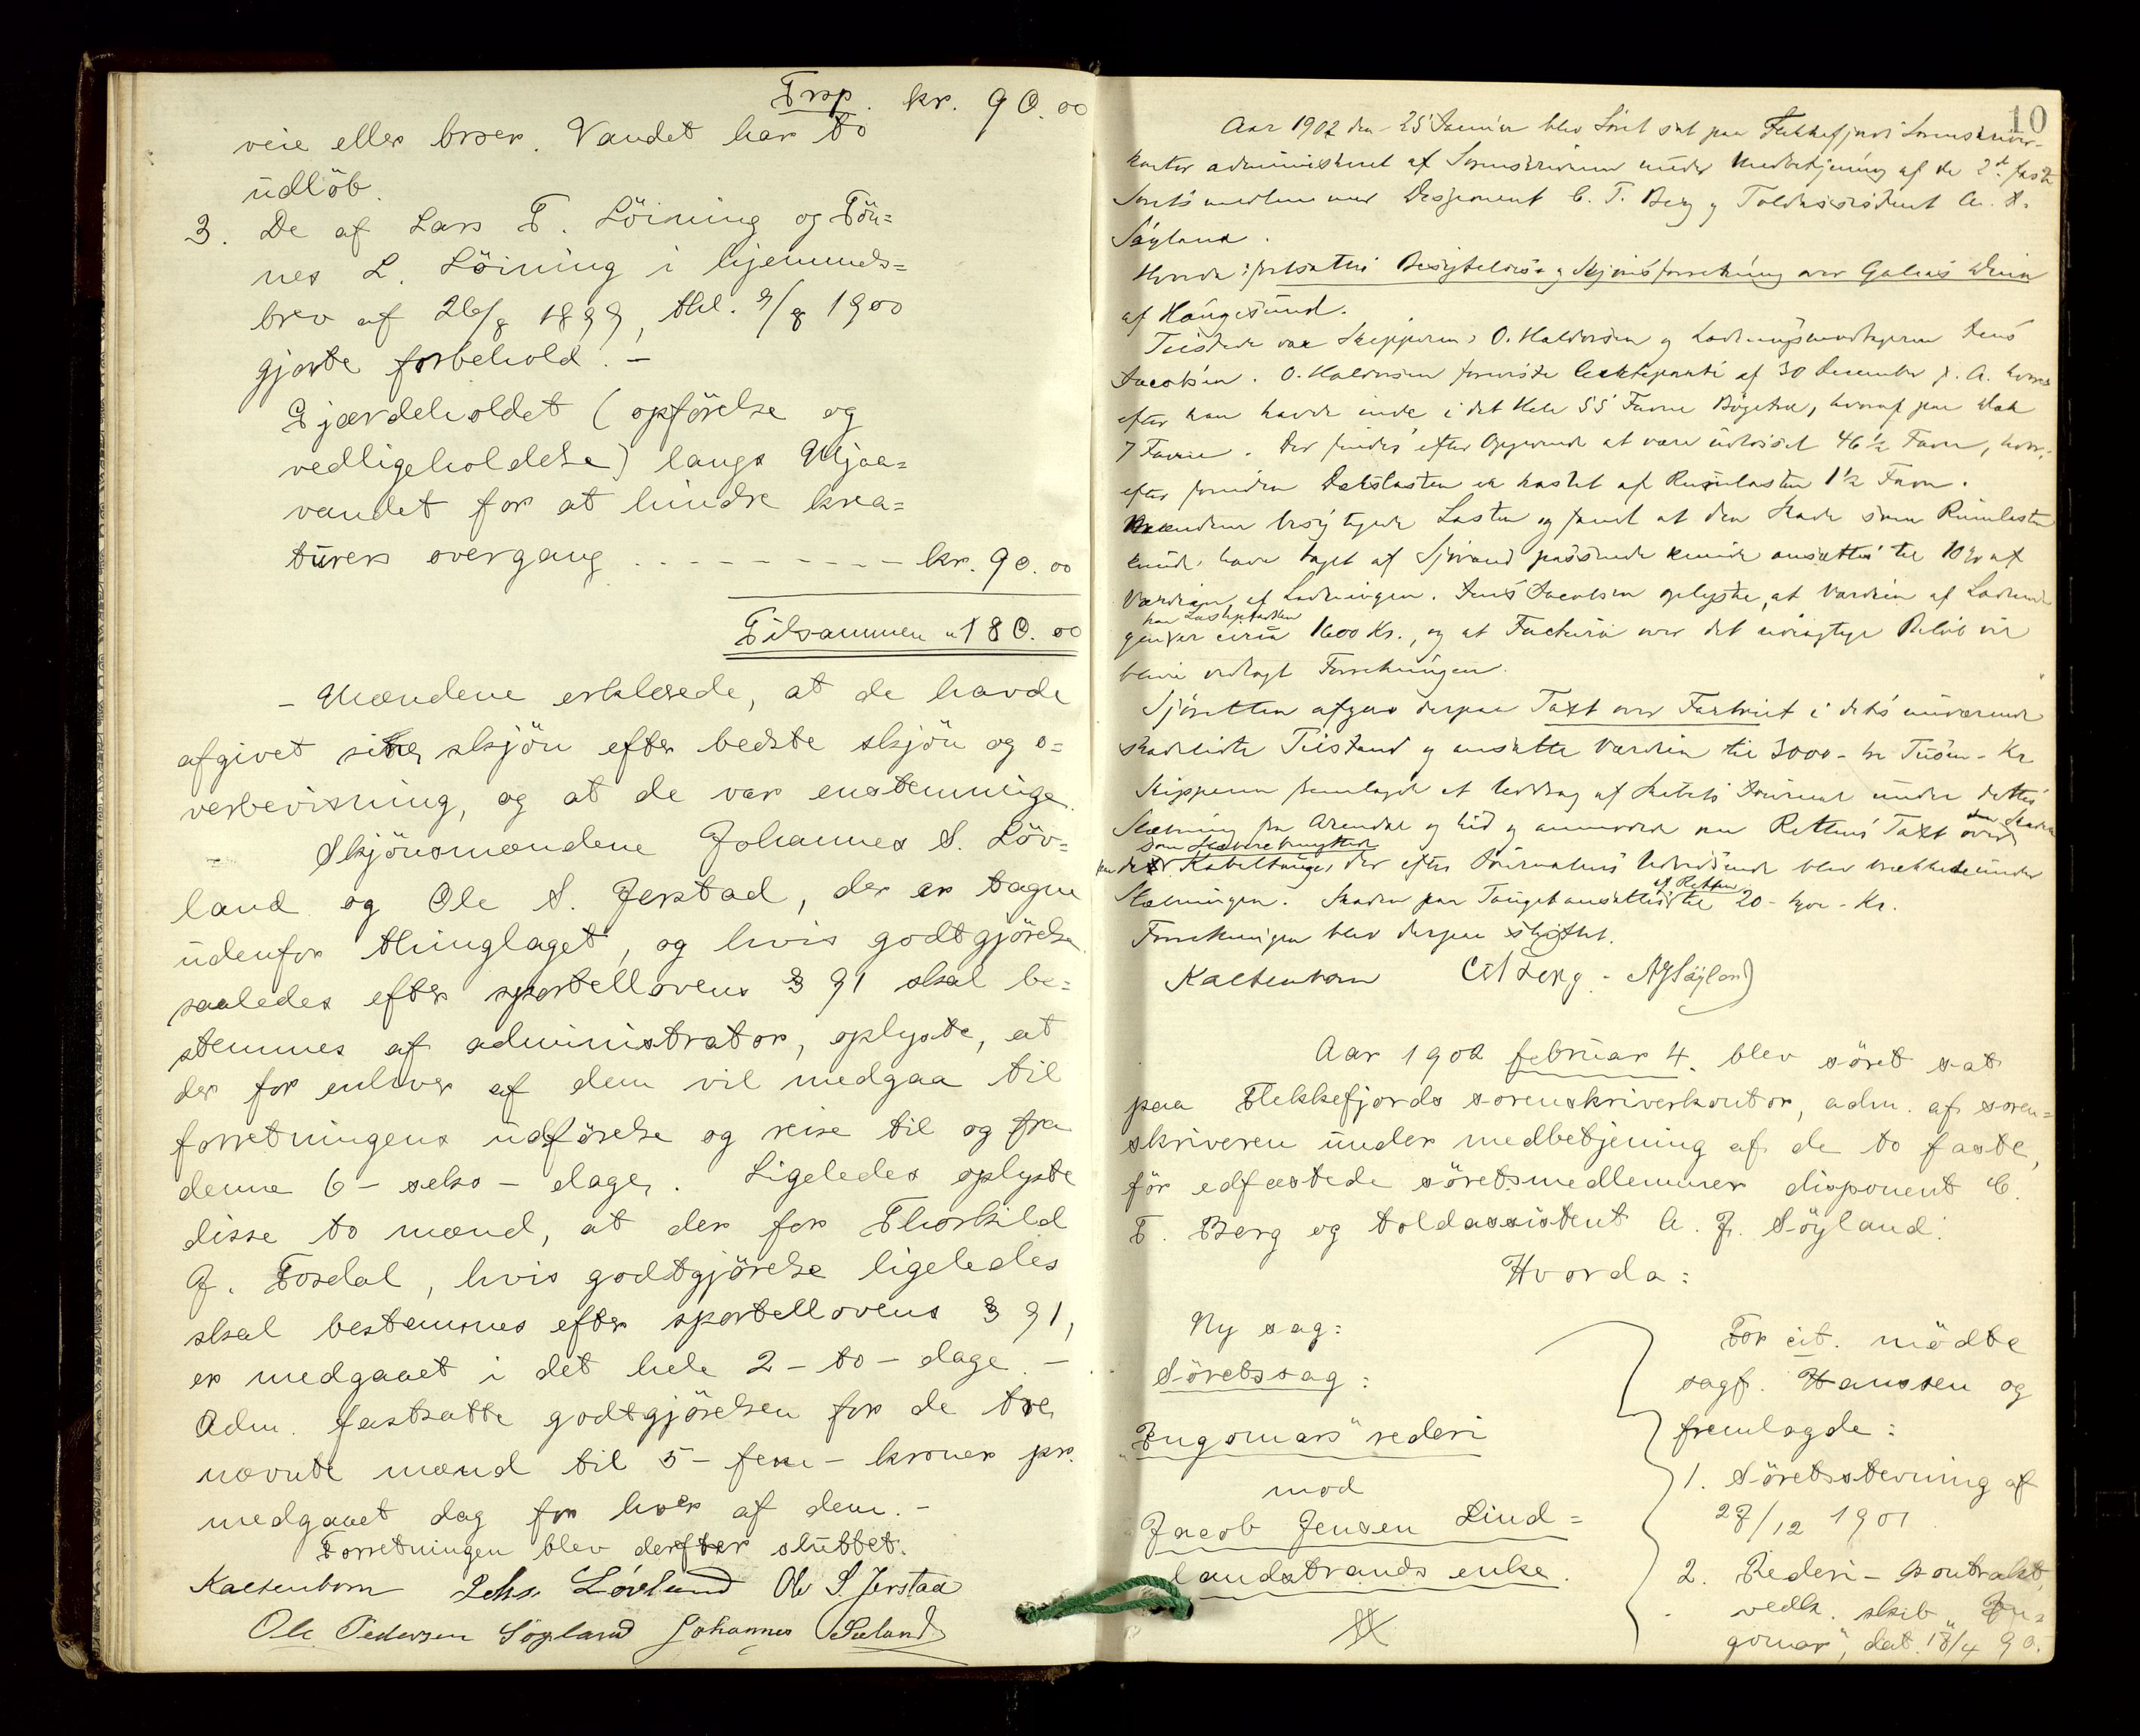 Trsp. kr. 90.00
veie eller broer. Vandet har to
udlöb.
3. De af Lars T. Löining og Tön=
nes L. Löining i hjemmels=
brev af 26/8 1899, thl. 9/8 1900
gjorte forbehold. –
Gjærdeholdet (opförelse og
vedligeholdelse) langs Mjaa=
vandet for at hindre krea=
turers overgang - - - - - - - - kr. 90.00
Tilsammen " 180.00
– Mændene erklærede, at de havde
afgivet sit skjön efter bedste skjön og o=
verbevisning, og at de var enstemmige.
Skjönsmændene Johannes S. Löv=
land og Ole S. Jerstad, der er tagne
udenfor thinglaget, og hvis godtgjörelse
saaledes efter sportellovens § 91 skal be=
stemmes af administrator, oplyste, at
der for enhver af dem vil medgaa til
forretningens udförelse og reise til og fra
denne 6 – seks – dage. Ligeledes oplyste
disse to mænd, at der for Thorkild
G. Fosdal, hvis godtgjörelse ligeledes
skal bestemmes efter sportellovens § 91,
er medgaaet i det hele 2 – to – dage. –
Adm. fastsatte godtgjörelsen for de tre
nævnte mænd til 5 – fem – kroner pr.
medgaaet dag for hver af dem. –
Forretningen blev derefter sluttet.
Kaltenborn Johs. Lövland Ole S Jerstad
Ole Pedersen Söyland Johannes
10
Aar 1902 den 25 Januar blev Söret sat paa Flekkefjords Sorenskriver-
kontor administreret af Sorenskriveren under Medbetjening af de 2de faste
Söretsmedlemmer Disponent C. T. Berg og Toldassistent A. J.
Söyland.
Hvorda: fortsattes Besigtelses- og Skjönsforretning over Galeas
af Haugesund.
Tilstede var Skipperen O. Halvorsen og Ladningsmodtageren Jens
Jacobsen. O. Halvorsen foreviste Certeparti af 30 December f. A. hvor-
efter han havde inde i det Hele 55 Favne Bögetræ, hvoraf paa Dæk
7 Favne. Der findes efter Opgivende at være udlosset 46½ Favn, hvor-
efter foruden Dækslasten er kastet af Rumlasten 1½ Favn.
Mændene besigtigede Lasten og fandt at den Skade som Rumlasten
kunde have taget af Sjövand passende kunde ansættes til 10% af
Værdien af Ladningen. Jens Jacobsen oplyste, at Værdien af Ladnin-
gen var circa 1600 Kr., og at Factura over det nöiagtige Belöb vil
blive vedlagt Forretningen.
Sjöretten afgav derpaa Taxt over Fartöiet i dets nuværende
skadelidte Tilstand og ansatte Værdien til 3000 – tre Tusen – Kr
Skipperen fremlagde et Uddrag af Skibets Journal under dettes
Slæbning fra Arendal og hid og anmodede om Rettens Taxt over den Skade
som Slæbere benyttede
Kabeltouge, der efter Journalens Udvisende blev brækkede under
Slæbningen. Skaden paa Touget ansættes af Retten til 20 – tyve – Kr.
Forretningen blev derpaa sluttet.
Kaltenborn CT Berg. AJ Söyland
Aar 1902 februar 4. blev söret sat
paa Flekkefjords sorenskriverkontor, adm. af soren=
skriveren under medbetjening af de to faste,
för edfæstede söretsmedlemmer disponent C.
T. Berg og toldassistent A. J. Söyland.
Hvorda:
Ny sag:
Söretssag:
"Ingomars" rederi
mod
Jacob Jensen Lind=
landstrands enke.
For cit. mödte
sagf. Hanssen og
fremlagde:
1. Söretsstevning af
27/12 1901.
2. Rederi-kontrakt
vedk. skib "In=
gomar", dat. 18/4 90.